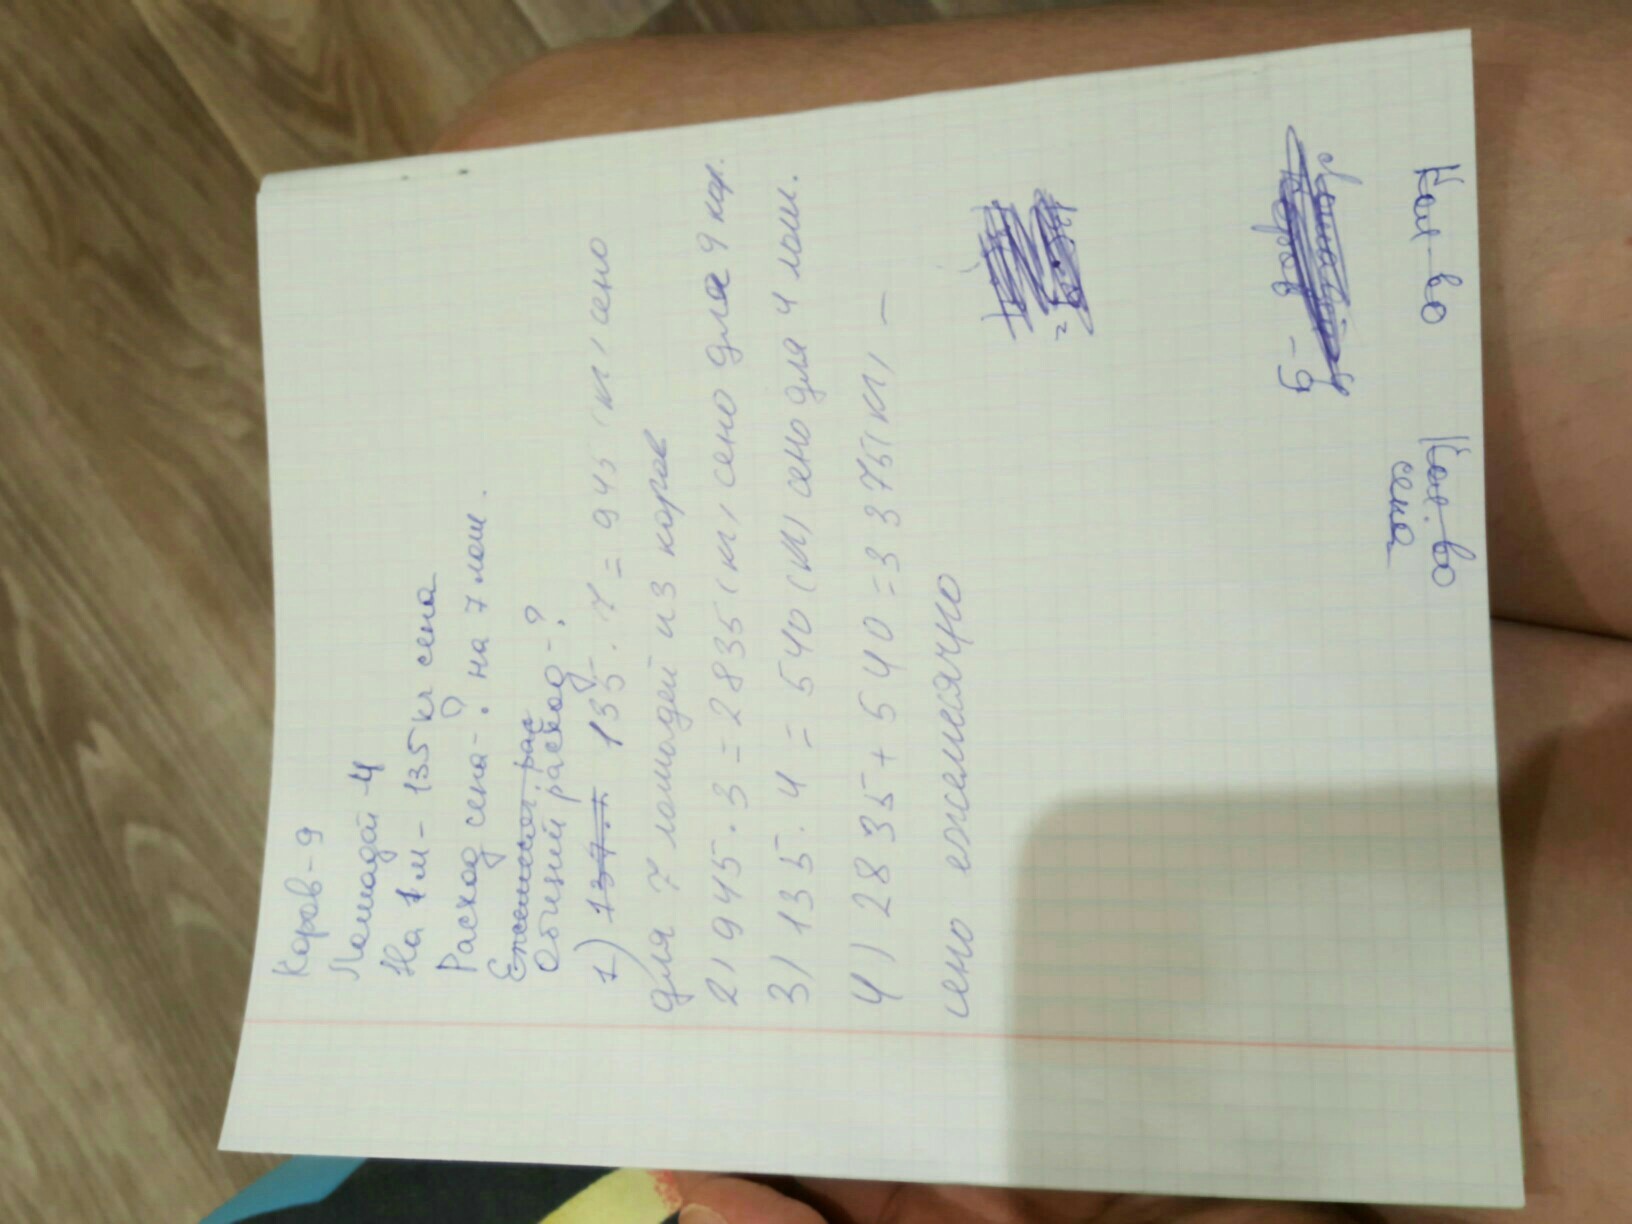 Коров - 9
Лошадей - 4
На 1 м - 135 кг сена
Расход сена - ? на 7 лош.
Ежемесяч. рас
Общий расход - ?
1) 137. 135 · 7 = 945 (кг) сено
для 7 лошадей и 3 коров
2) 945 · 3 = 2835 (кг) сено для 9 кор.
3) 135 · 4 = 540 (кг) сено для 4 лош.
4) 2835 + 540 = 3375 (кг) -
сено ежемесячно
=
Коров - 9
Кол-во
Кол-во
сена